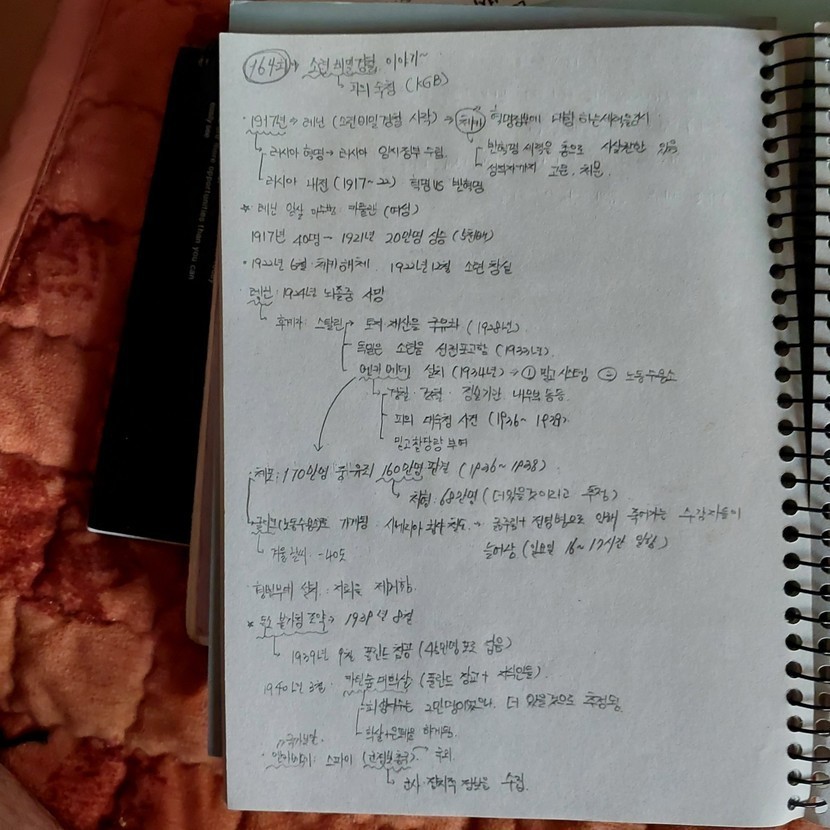 164회 → 소련 비밀경찰 이야기~
피의 숙청 (KGB)
· 1917년 → 레닌 (소련비밀경찰 시작) → 체카 혁명정부에 대항하는 세력을 감시
러시아 혁명 → 러시아 임시정부 수립. 반혁명 세력을 총으로 사살한한 있음
러시아 내전 (1917~22) 혁명 vs 반혁명 고문, 처형.
* 레닌 암살 미수범: (여성)
1917년 40명 → 1921년 20만명 상승 (5천배)
· 1922년 6월 체카해체. 1922년 12월 소련 창설
레닌: 1924년 뇌졸중 사망
후계자: 스탈린 → 토지 재산을 국유화 (1928년).
독일은 소련을 선전포고함 (1933년).
엔카베데 설치 (1934년) → ① 밀고 시스템 ② 노동수용소
경찰· 내무부 등등.
피의 대숙청 사건 (1936~1938)
밀고할당량 부여
· 체포: 170만명 중 유죄 160만명 판결 (1936~1938)
처형: 68만명 (더 있을것이라고 추정)
굴라크(노동수용소)로 가게됨. 시베리아 → 굶주림+전염병으로 인해 죽어가는 수감자들이
겨울날씨 -40도 늘어남 (일요일 16~17시간 일함)
설치:
* 독소 불가침 조약 → 1939년 8월
1939년 9월 폴란드 침공 (4만명 포로 잡음)
1940년 3월: 카틴숲 대학살 (폴란드 장교 + 지식인들)
2만명이었으나 더 있을것으로 추정됨.
학살+은폐를 하게됨.
스파이 국외
군사·정치적 정보를 수집
more opportunities than you can